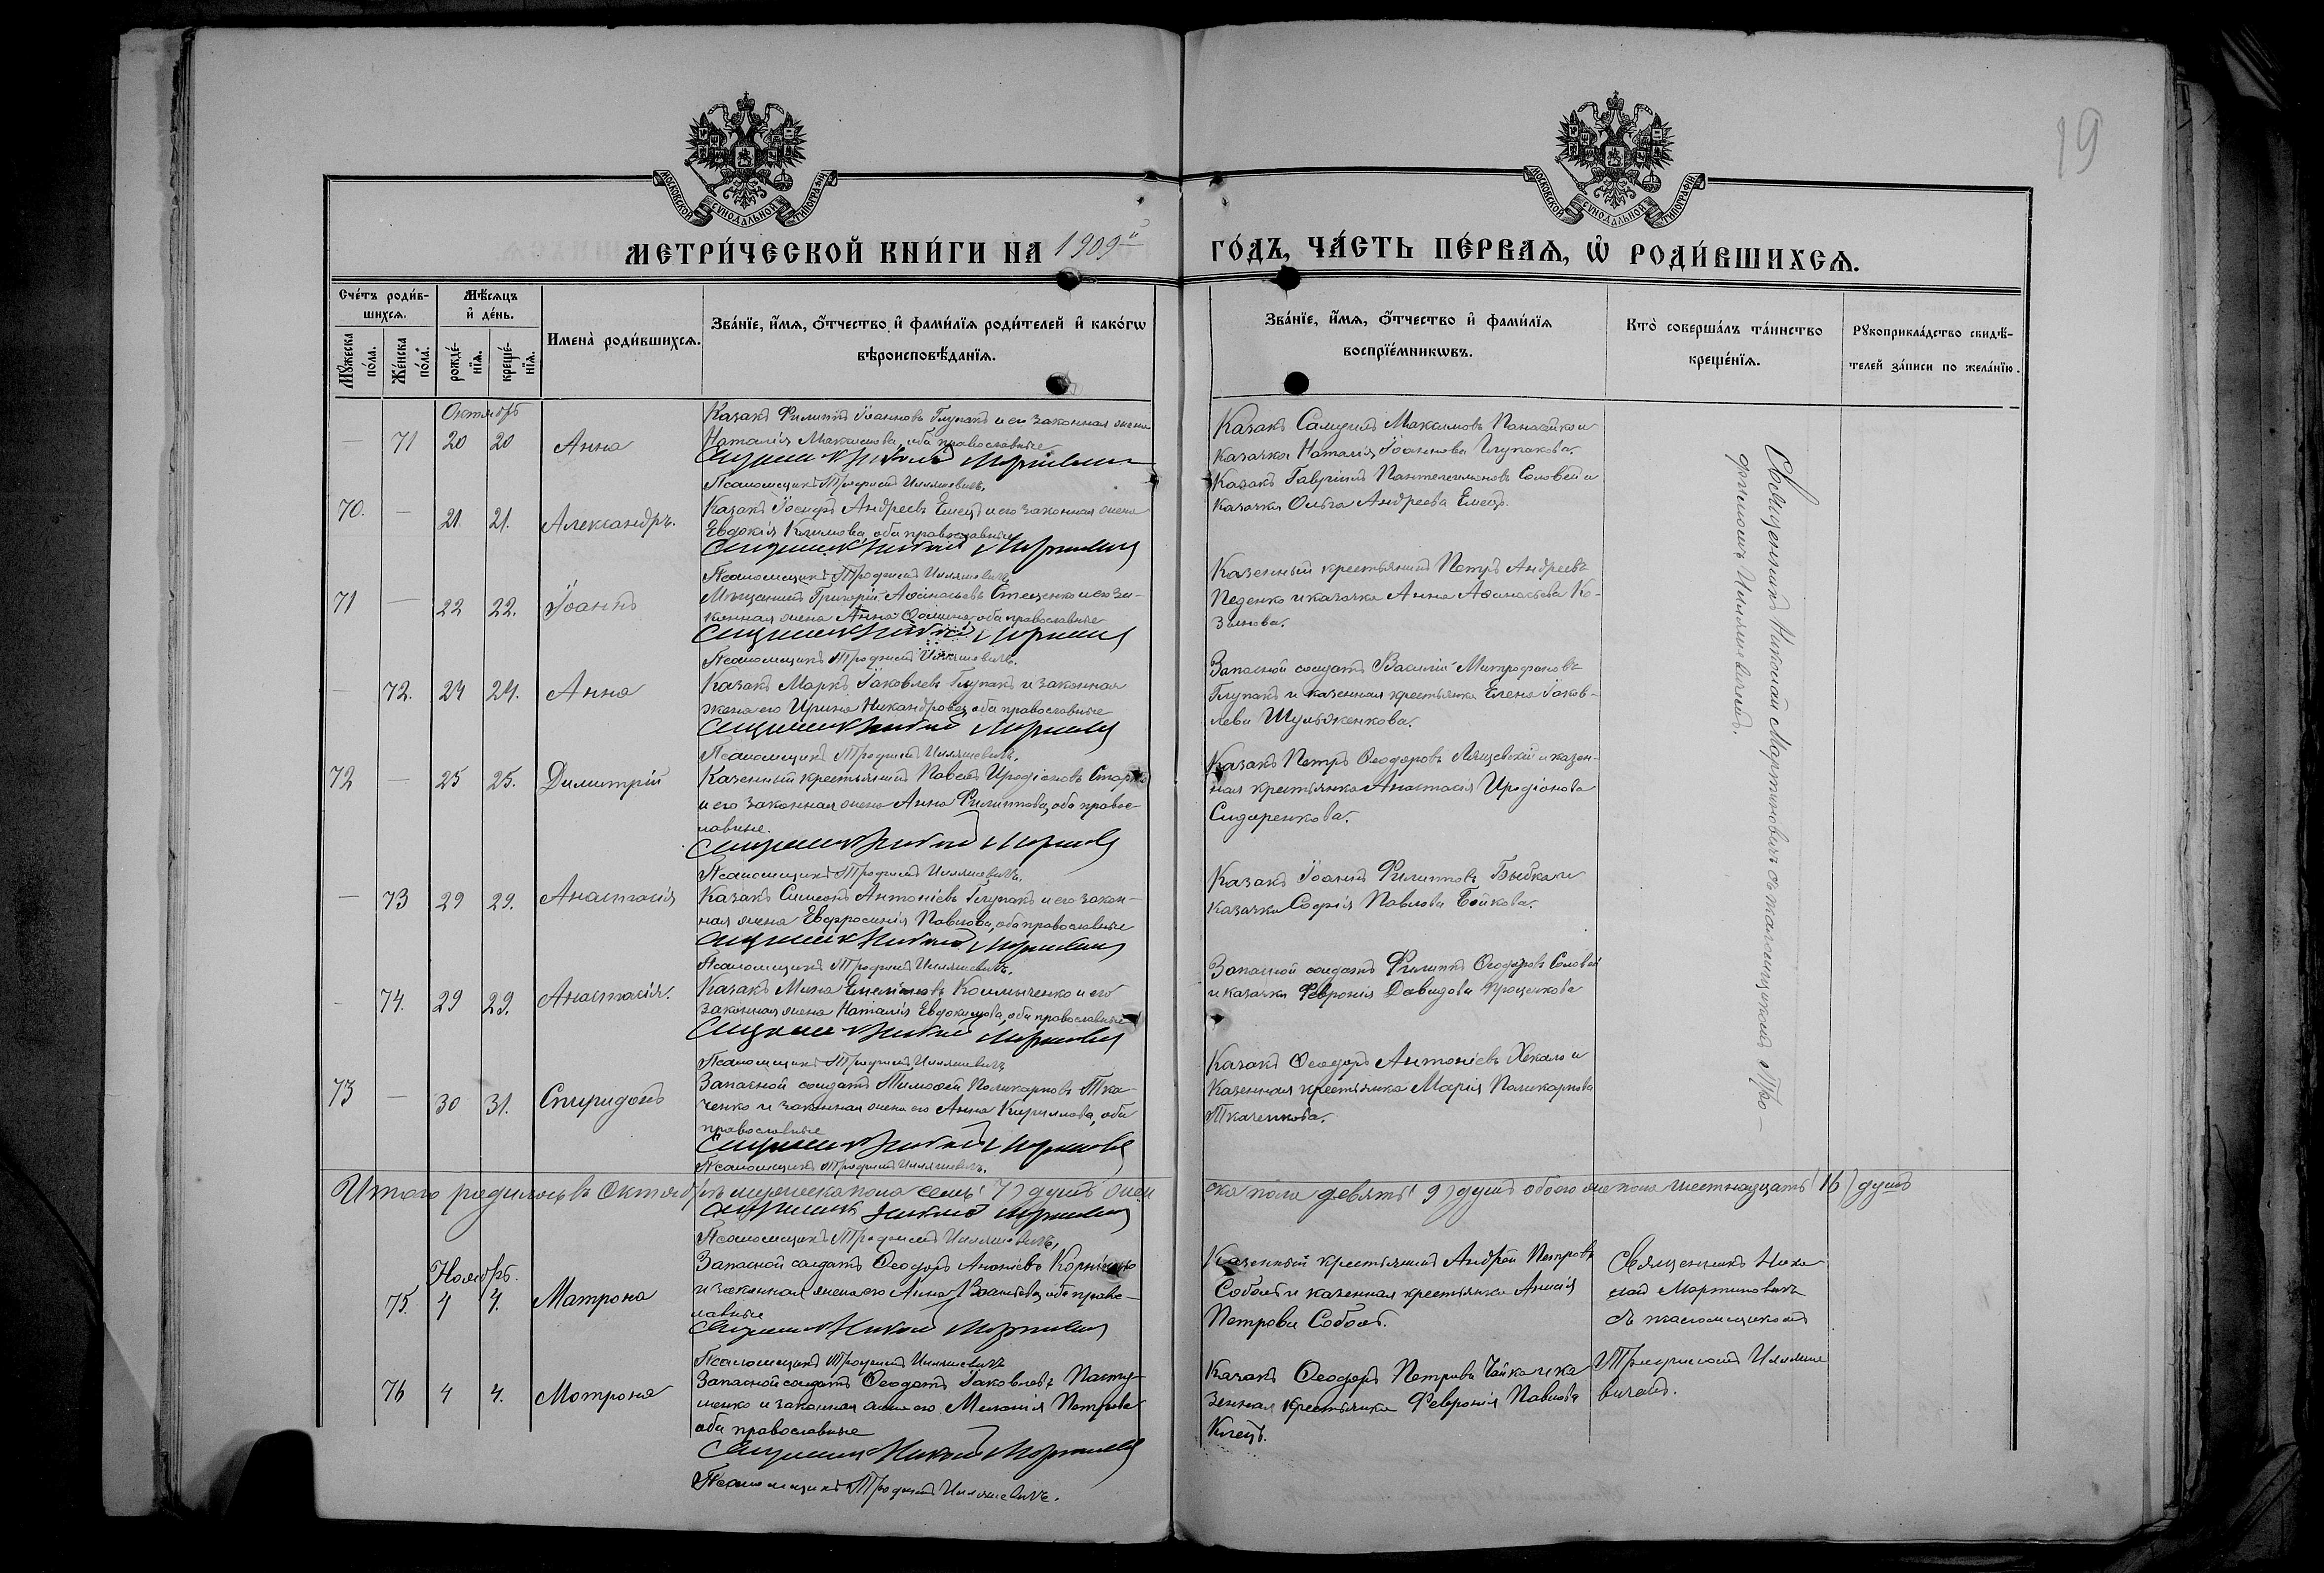 19
МОСКОВСКОЙ СѴНОДАЛЬНОЙ ТИПОГРАФІИ
МОСКОВСКОЙ СѴНОДАЛЬНОЙ ТИПОГРАФІИ
МЕТРИ́ЧЕСКОЙ КНИ́ГИ НА 1909й ГО́ДЪ, ЧА́СТЬ ПЕ́РВАѦ, Ѽ РОДИ́ВШИХСѦ.
Сче́тъ роди́в-
шихсѧ.
Мꙋ́жеска по́ла.
Же́нска по́ла.
Мѣ́сѧцъ
и҆ де́нь.
рожде́-нїѧ.
креще́-нїѧ.
И҆мена̀ роди́вшихсѧ.
Зва́нїе, и҆́мѧ, ѻ҆́тчество, и҆ фами́лїѧ роди́телей и҆ како́гѡ
вѣроисповѣ́данїѧ.
Зва́нїе, и҆́мѧ, ѻ҆́тчество и҆ фами́лїѧ
воспрїе́мникѡвъ.
Кто̀ соверша́лъ та́инство
креще́нїѧ.
Рꙋкоприкла́дство свидѣ́-
телей за́писи по жела́нїю.
Октябрь
— 71 20 20 Анна
Казакъ Филиппъ Іоанновъ Глупакъ и его законная жена
Наталія Максимова, оба православные
Священникъ Николай Мартиновичъ
Псаломщикъ Трофимъ Илляшевичъ.
Казакъ Самуилъ Максимовъ Панасейко и
казачка Наталія Іоаннова Глупакова.
70. — 21. 21. Александръ.
Казакъ Іосифъ Андреевъ Емецъ и его законная жена
Евдокія Климова, оба православные
Священникъ Николай Мартиновичъ
Псаломщикъ Трофимъ Илляшевичъ
Казакъ Гавріилъ Пантелеимоновъ Соловей и
казачка Ольга Андреева Емецъ.
71 — 22 22. Іоаннъ
Мѣщанинъ Григорій Аѳанасьевъ Стеценко и его за-
конная жена Анна Ѳомина, оба православные
Священникъ Николай Мартиновичъ
Псаломщикъ Трофимъ Илляшевичъ.
Казенный крестьянинъ Петръ Андреевъ
Педенко и казачка Анна Аѳанасьева Ко-
— 72. 24 24. Анна
Казакъ Маркъ Іаковлевъ Глупакъ и законная
жена его Ирина Никандрова, оба православные
Священникъ Николай Мартиновичъ
Псаломщикъ Трофимъ Илляшевичъ.
Запасной солдатъ Василій Митрофановъ
Глупакъ и казенная крестьянка Елена Іаков-
лева Шульженкова.
72 — 25 25. Димитрій
Казенный крестьянинъ Павелъ Иродіоновъ
и его законная жена Анна Филиппова, оба правос-
лавные.
Священникъ Николай Мартиновичъ
Псаломщикъ Трофимъ Илляшевичъ.
Казакъ Петръ Ѳеодоровъ Лящевскій и казен-
ная крестьянка Анастасія Иродіонова
Сидоренкова.
— 73 29 29. Анастасія
Казакъ Симеонъ Антоніевъ Глупакъ и его закон-
ная жена Евфросинія Павлова, оба православные
Священникъ Николай Мартиновичъ
Псаломщикъ Трофимъ Илляшевичъ.
Казакъ Іоаннъ Филипповъ Быбка и
казачка Софія Павлова Бойкова.
— 74. 29 29. Анастасія.
Казакъ Мина Емеліановъ и его
законная жена Наталія Евдокимова, оба православные
Священникъ Николай Мартиновичъ
Псаломщикъ Трофимъ Илляшевичъ
Запасной солдатъ Филиппъ Ѳеодоровъ Соловей
и казачка Февронія Давидова Проценкова
73 — 30 31. Спиридонъ
Запасной солдатъ Тимоѳей Поликарповъ Тка-
ченко и законная жена его Анна Кириллова, оба
православные
Священникъ Николай Мартиновичъ
Псаломщикъ Трофимъ Илляшевичъ.
Казакъ Ѳеодоръ Антоніевъ Хекало и
казенная крестьянка Марія Поликарпова
Ткаченкова.
Священникъ Николай Мартиновичъ съ псаломщикомъ Тро-
фимомъ Илляшевичемъ.
Итого родилось въ Октябрѣ мужеска пола семь (7) душъ жен- ска пола девять (9) душъ обоего же пола шестнадцать (16) душъ
Священникъ Николай Мартиновичъ
Псаломщикъ Трофимъ Илляшевичъ.
Ноябрь.
75. 4 4. Матрона
Запасной солдатъ Ѳеодоръ Ананіевъ
и законная жена его Анна оба право-
славные
Священникъ Николай Мартиновичъ
Псаломщикъ Трофимъ Илляшевичъ
Казенный крестьянинъ Андрей Петровъ
Соболь и казенная крестьянка
Петрова Соболь.
Священникъ Нико
лай Мартиновичъ
съ псаломщикомъ
Трофимомъ Илляше
вичемъ.
76 4 4. Мотрона
Запасной солдатъ Ѳеодотъ Іаковлевъ
и законная жена его Меланія Петрова
оба православные
Священникъ Николай Мартиновичъ
Псаломщикъ Трофимъ Илляшевичъ.
Казакъ Ѳеодоръ Петровъ Чайка и ка
зенная крестьянка Февронія Павлова